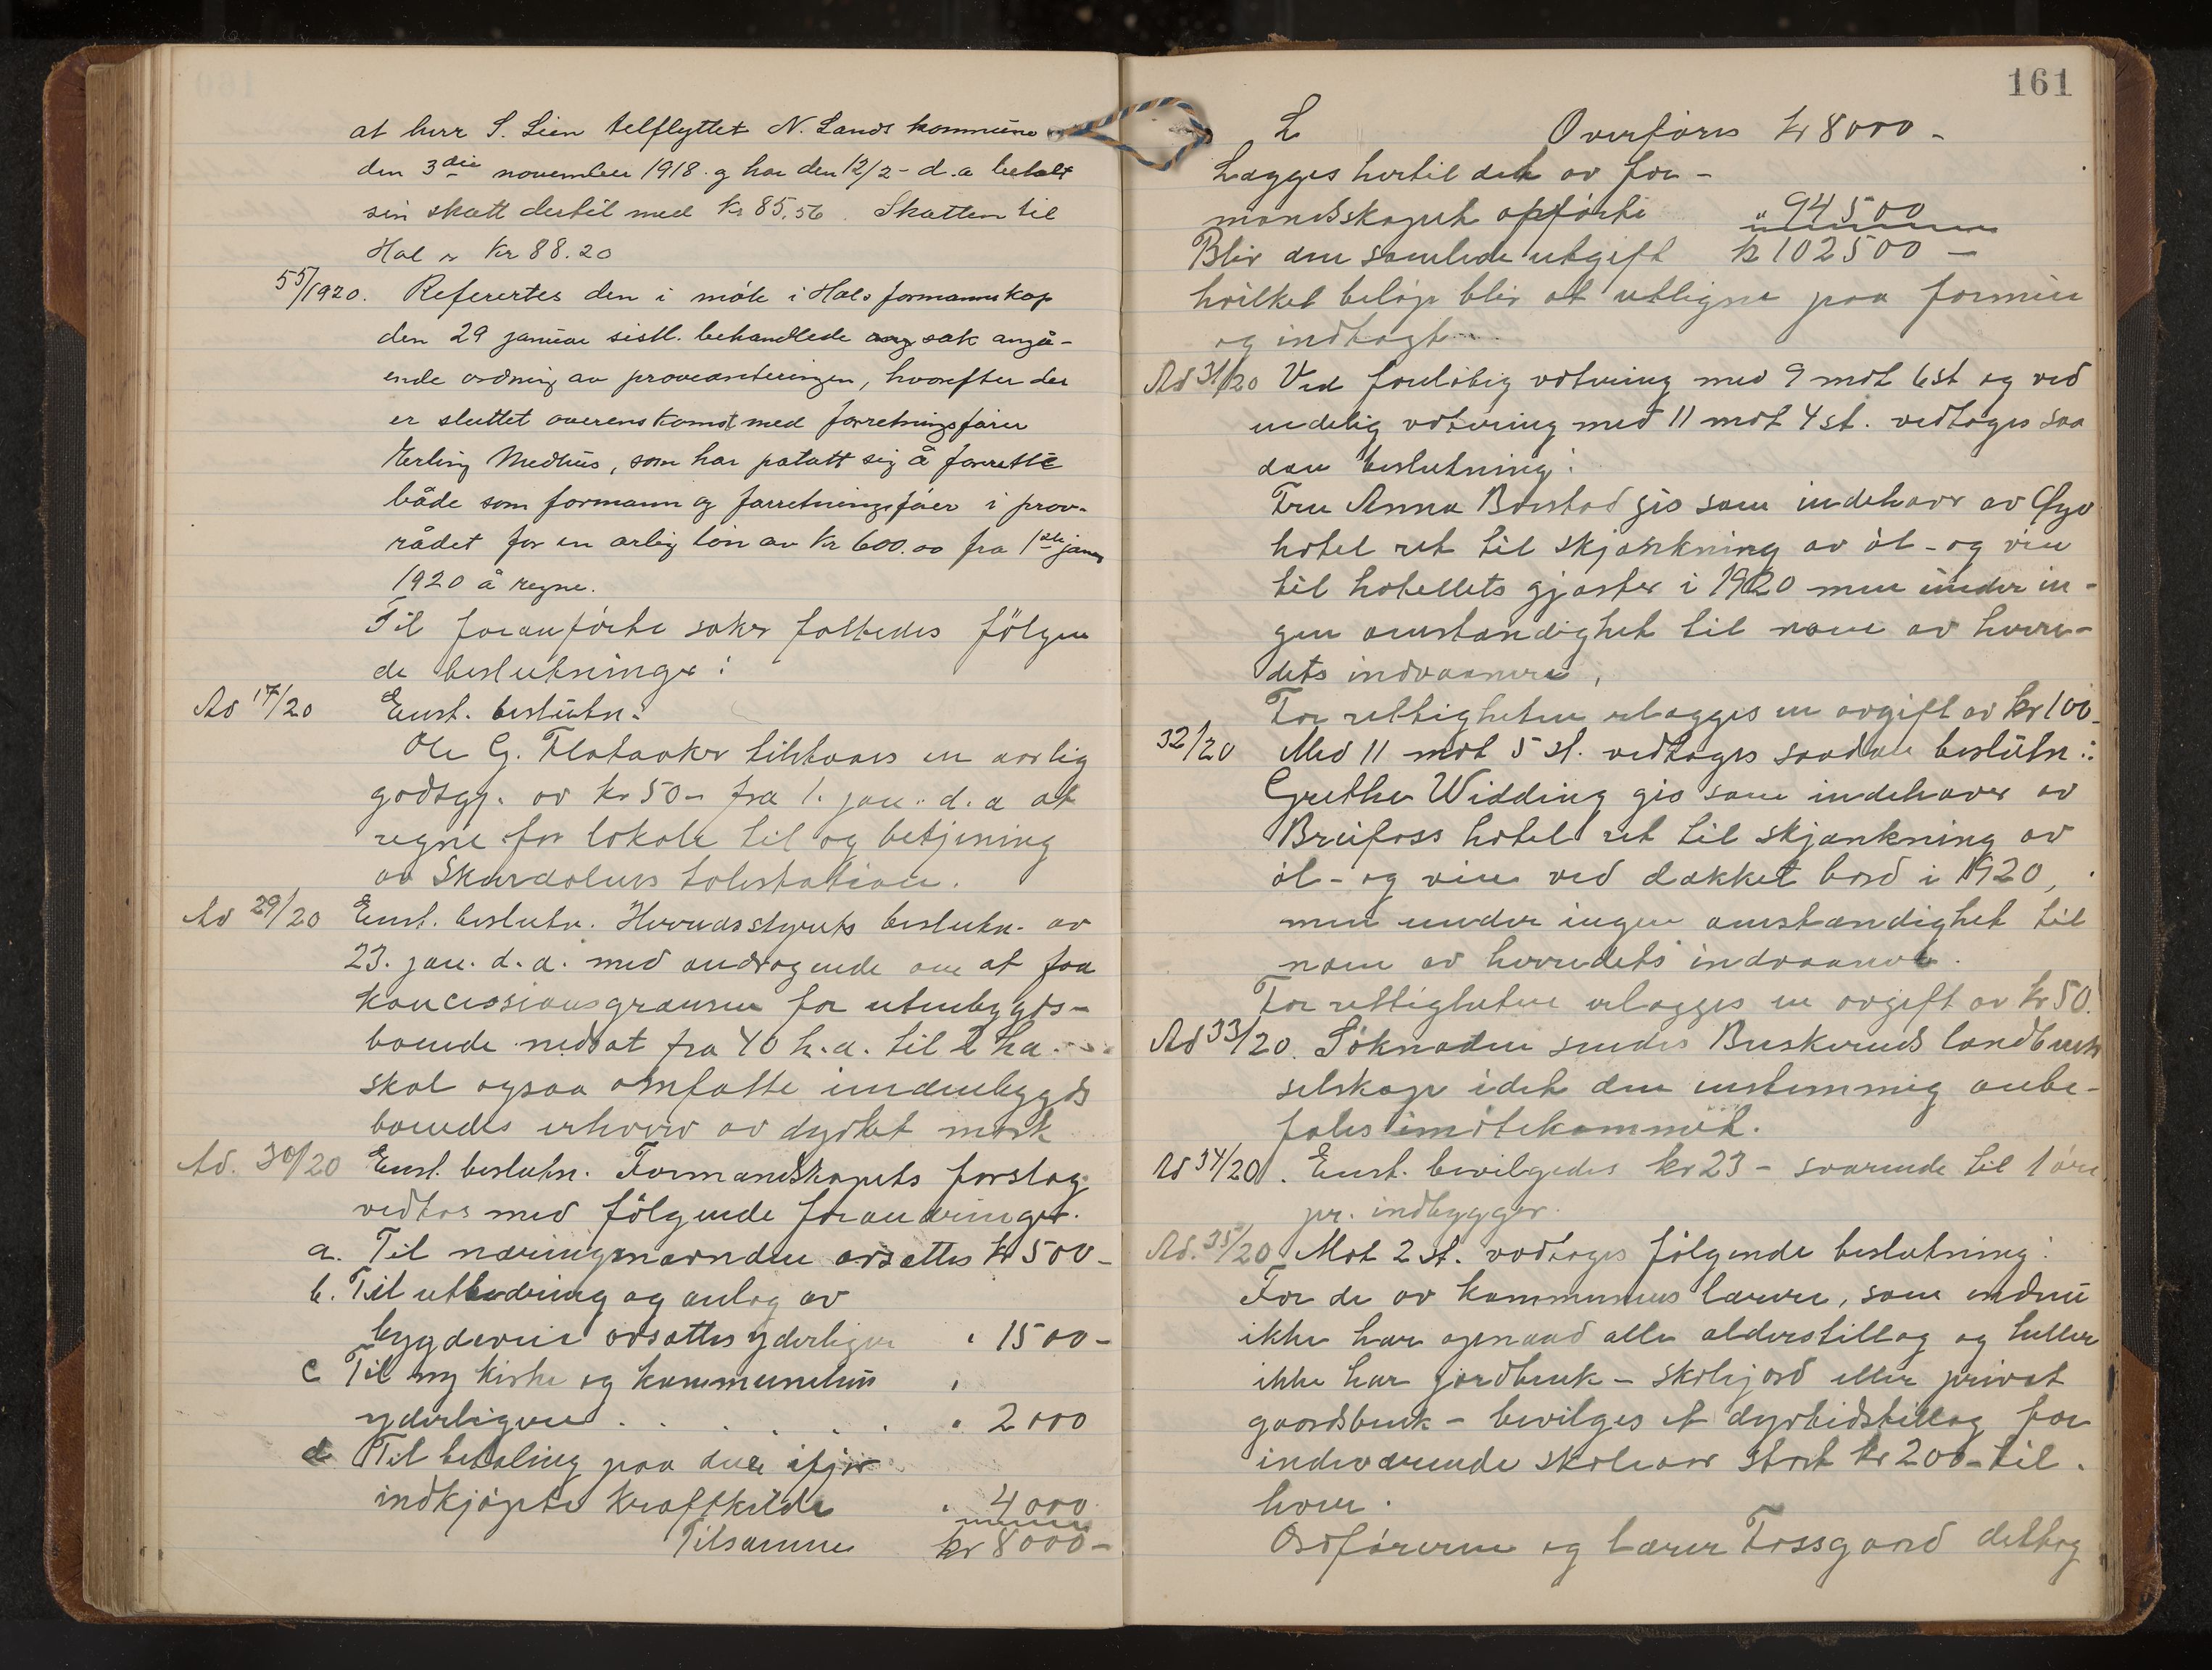 at herr S. Lien telflyttet N. Lands kommune
den 3die november 1918 og har den 12/2 - d.a betalt
sin skatt dertil med kr 85,56. Skatten til
Hol er kr 88.20
55/1920. Referertes den i möte i Hols formannskap
den 29 januar sistl. behandlede sak angå-
ende ordning av provianteringen, hvorefter der
er sluttet overenskomst med forretningsförer
Erling Medhus, som har patatt sig å forrette
både som formann og forretningsförer i prov.
rådet for en arlig lön av kr 600.00 fra 1ste januar
1920 å regne.
Til foranförte saker fattedes fölgen
de beslutninger:
Ad 17/20 Enst. beslutn:
Ole G. Flataaker tilstaaes en aarlig
godtgj. av kr 50- fra 1. jan. d.a at
regne for lokale til og betjening
av Skurdalens telestation.
Ad 29/20 Enst. beslutn. Herredsstyrets beslutn. av
23. jan. d.a. med andragende om at faa
koncessionsgrænsen for utenbygds-
boende nedsat fra 40 h.a. til 2 ha.
skal ogsaa omfatte indenbygds
boendes erhverv av dyrket mark
Ad. 30/20 Enst. beslutn. Formandskapets forslag
vedtas med fölgende forandringer.
a. Til næringsnævnden avsættes kr 500-
b. Til utbedring og anlæg av
bygdeveie avsættes yderligere " 1500-
c Til ny kirke og kommunehus "
yderligere . . . . . " 2000
d Til betaling paa den ifjor
indkjöpte kraftkilde " 4000
Tilsammen kr 8000-
161
L Overföres kr 8000-
Lægges hertil det av for-
mandskapet opförte " 94500
Blir den samlede utgift kr 102500 -
hvilket belöp blir at utligne paa formue
og indtægt.
Ad 31/20 Ved forelöbig votering med 9 mot 6 st og ved
endelig votering med 11 mot 4 st. vedtages saa
dan beslutning:
Fru Anna Borstad gis som indehaver av Gjeo
hotel ret til skjænkning av öl- og vin
til hotellets gjæster i 1920 men under in-
gen omstændighet til noen av herre-
dets indvaanere.
For rettigheten erlægges en avgift av kr 100-
32/20 Med 11 mot 5 st. vedtages saadan beslutn:
Grethe Widding gis som indehaver av
Breifoss hotel ret til skjænkning av
öl- og vin ved dækket bord i 1920,
men under ingen omstændighet til
noen av herredets indvaanere.
For rettigheten erlægges en avgift av kr 50.
Ad 33/20. Söknaden sendes Buskeruds landbruks
selskap idet den enstemmig anbe-
fales imötekommet.
Ad 34/20. Enst. bevilgedes kr 23 - svarende til 1 öre
pr. indbygger.
Ad. 35/20 Mot 2 st. vedtages fölgende beslutning:
For de av kommunens lærere, som endnu
ikke har opnaad alle alderstillæg og heller
ikke har jordbruk - skolejord eller privat
gaardsbruk - bevilges et dyrtidstillæg for
indeværende skoleaar stort kr 200- til
hver.
Ordföreren og lærer Fossgaard deltog